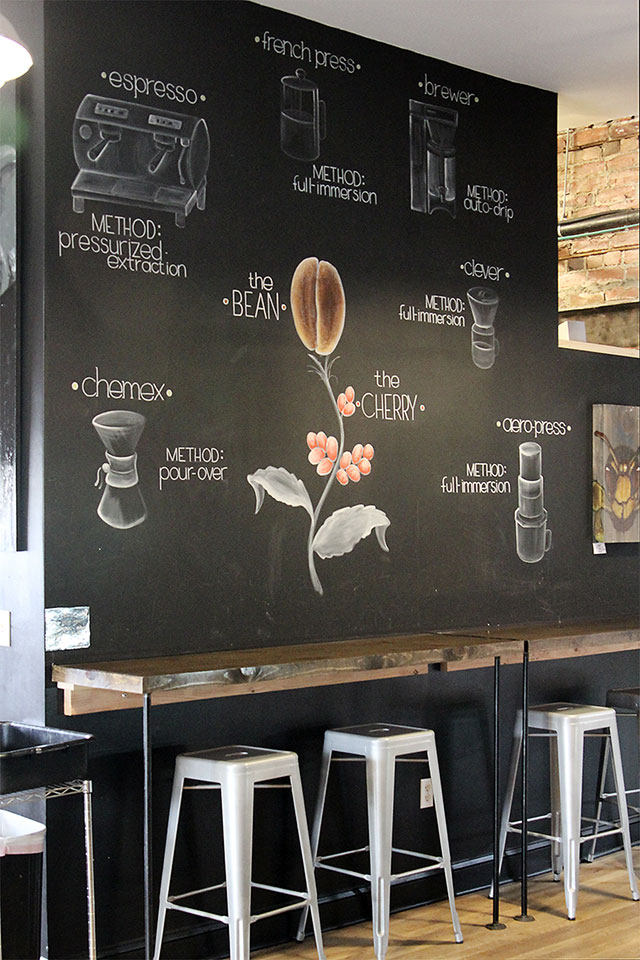 •espresso•
METHOD:
pressurized
extraction
•french press•
METHOD:
full-immersion
•brewer•
METHOD:
auto-drip
•the
BEAN•
•clever•
METHOD:
full-immersion
•chemex•
METHOD:
pour-over
the
•CHERRY•
•aero-press•
METHOD:
full-immersion